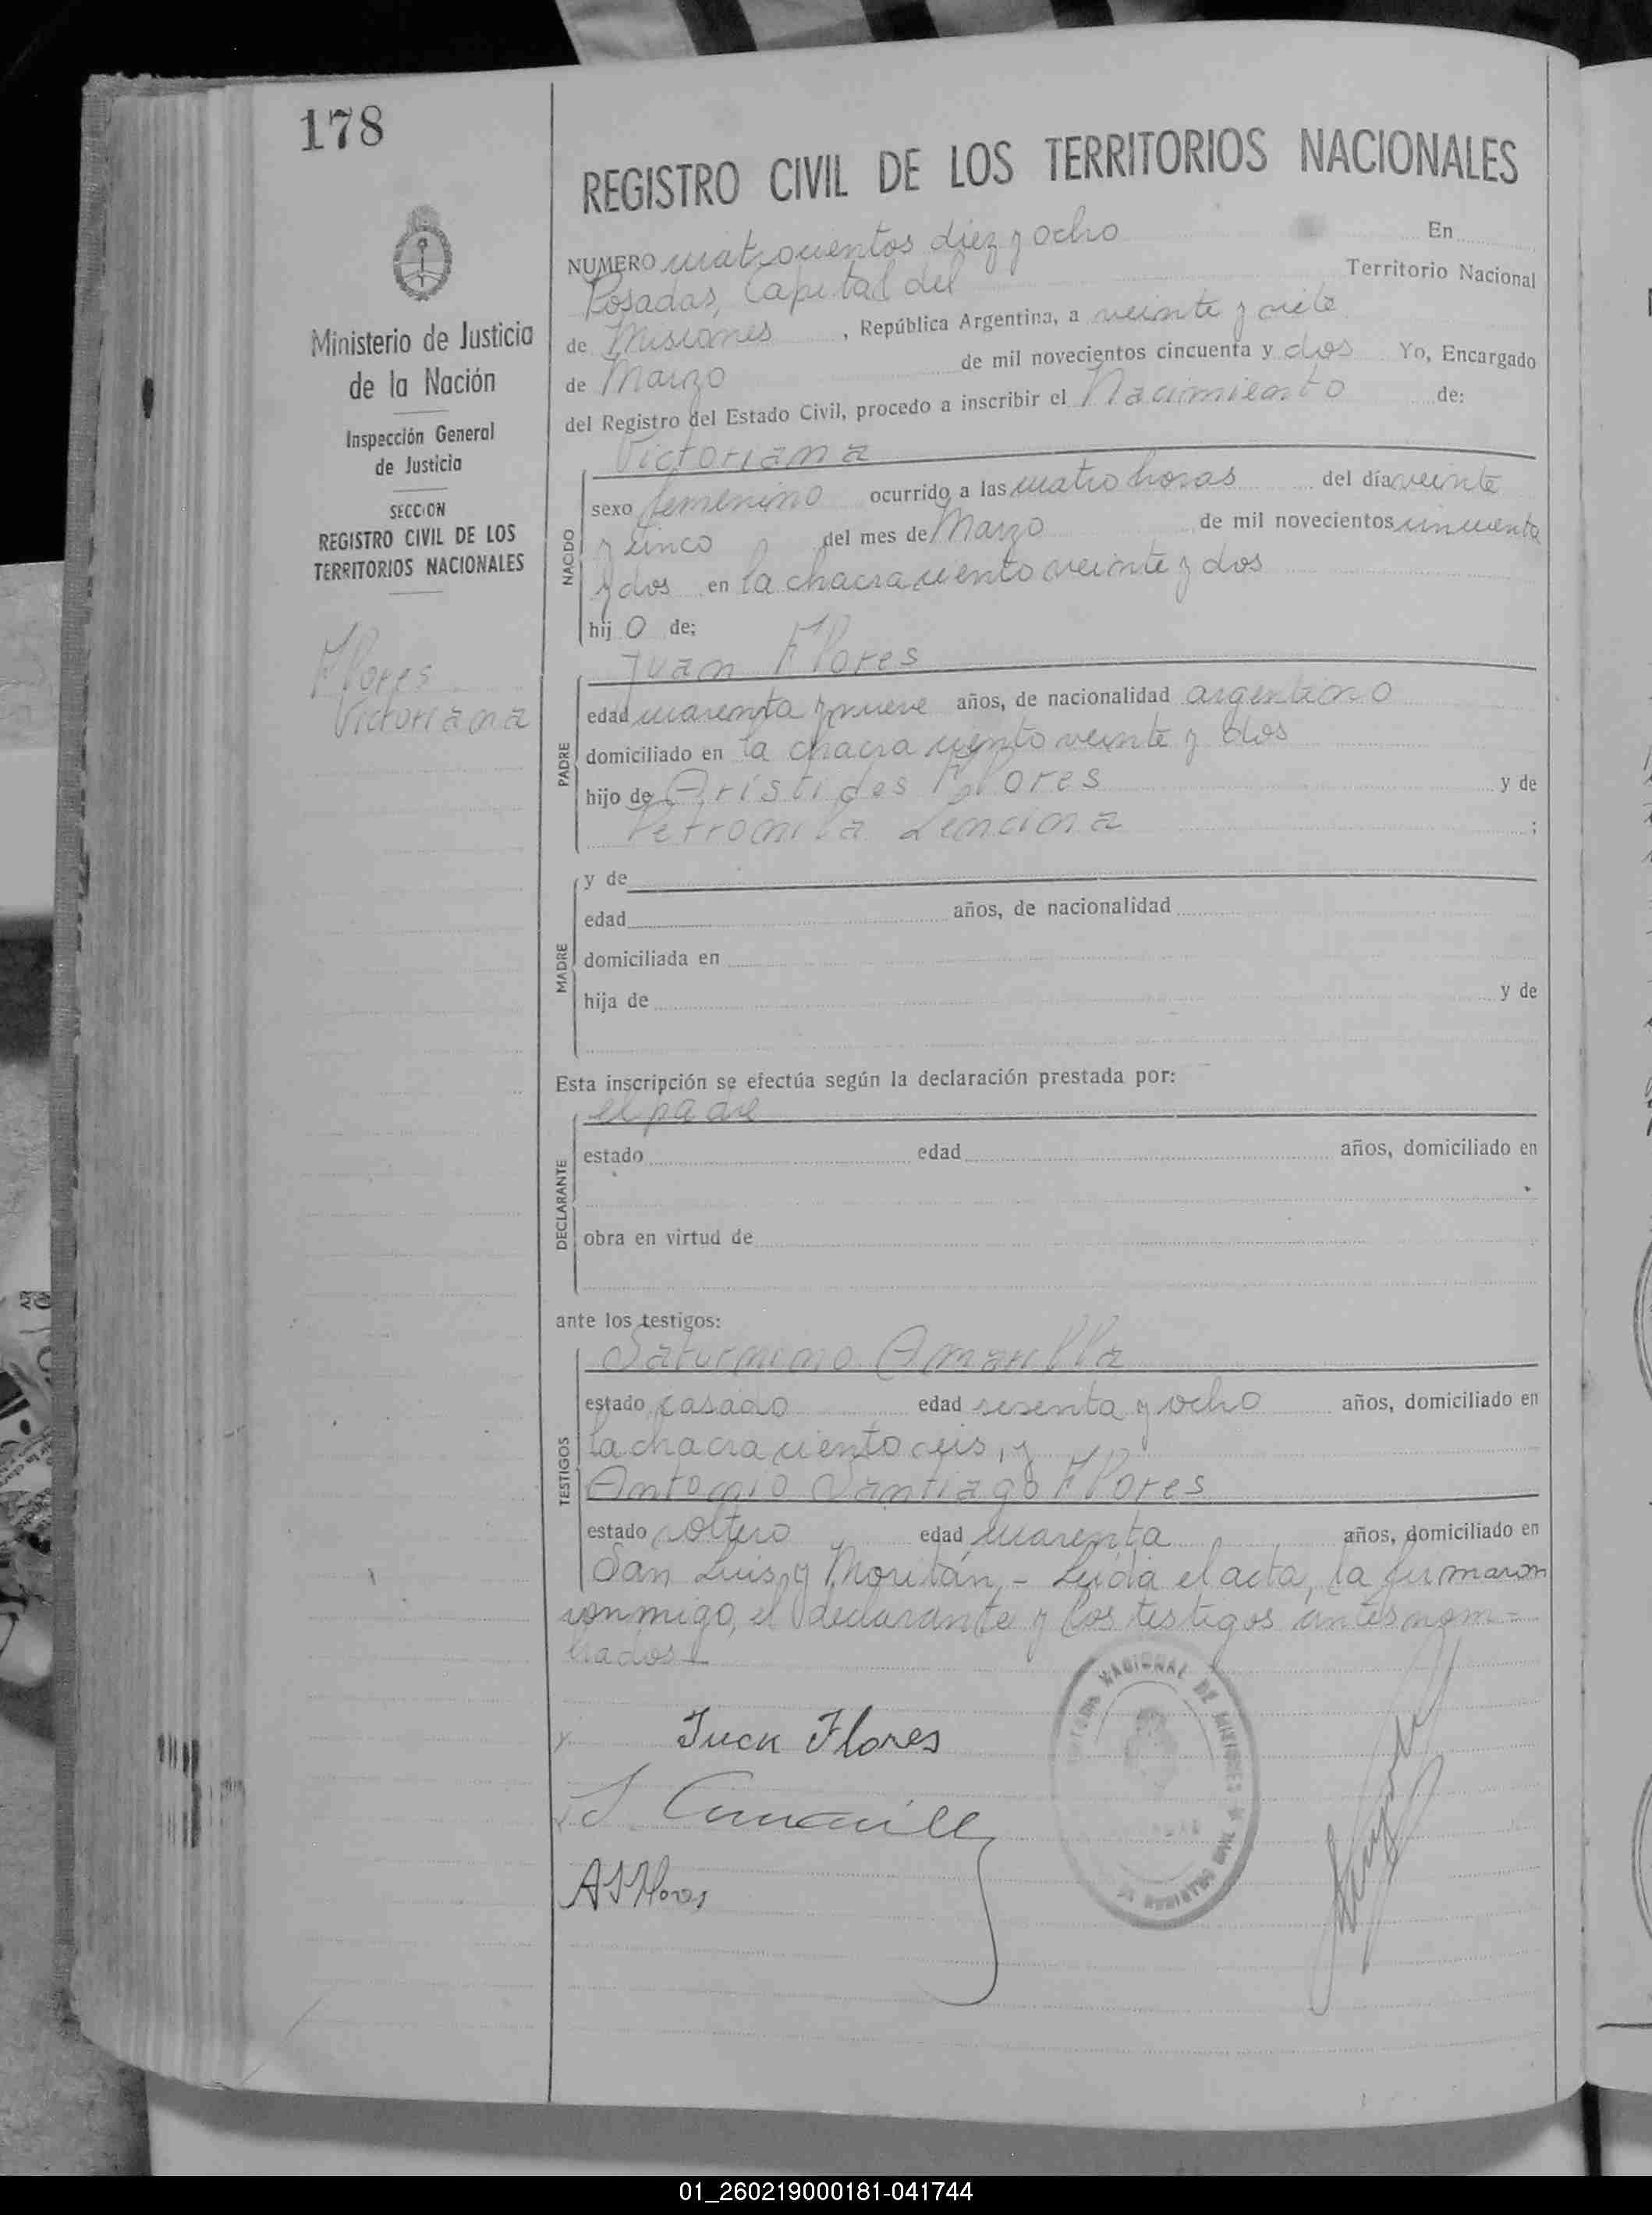 178
REGISTRO CIVIL DE LOS TERRITORIOS NACIONALES
Ministerio de Justicia
de la Nación
Inspección General
de Justicia
SECCION
REGISTRO CIVIL DE LOS
TERRITORIOS NACIONALES
Flores
Victoriana
NUMERO cuatrocientos diez y ocho En
Posadas, Capital del Territorio Nacional
de Misiones , República Argentina, a veinte y siete
de Marzo de mil novecientos cincuenta y dos Yo, Encargado
del Registro del Estado Civil, procedo a inscribir el Nacimiento de:
NACIDO
Victoriana
sexo femenino ocurrido a las cuatro horas del día veinte
y cinco del mes de Marzo de mil novecientos cincuenta
y dos en la chacra ciento veinte y dos
hij o de:
PADRE
Juan Flores
edad cuarenta y nueve años, de nacionalidad argentino
domiciliado en la chacra ciento veinte y dos
hijo de Arístides Flores y de
Petronila Lencina ;
MADRE
y de
edad años, de nacionalidad
domiciliada en
hija de y de
Esta inscripción se efectúa según la declaración prestada por:
DECLARANTE
el padre
estado edad años, domiciliado en
obra en virtud de
ante los testigos:
TESTIGOS
Saturnino Amarilla
estado casado edad sesenta y ocho años, domiciliado en
la chacra ciento seis, y
Antonio Santiago Flores
estado soltero edad cuarenta años, domiciliado en
San Luis y Moritán.- Leída el acta, la firmaron
conmigo, el declarante y los testigos antes nom-
brados.-
Juan Flores
A S Flores
NACIONAL DE MISIONES
01_260219000181-041744